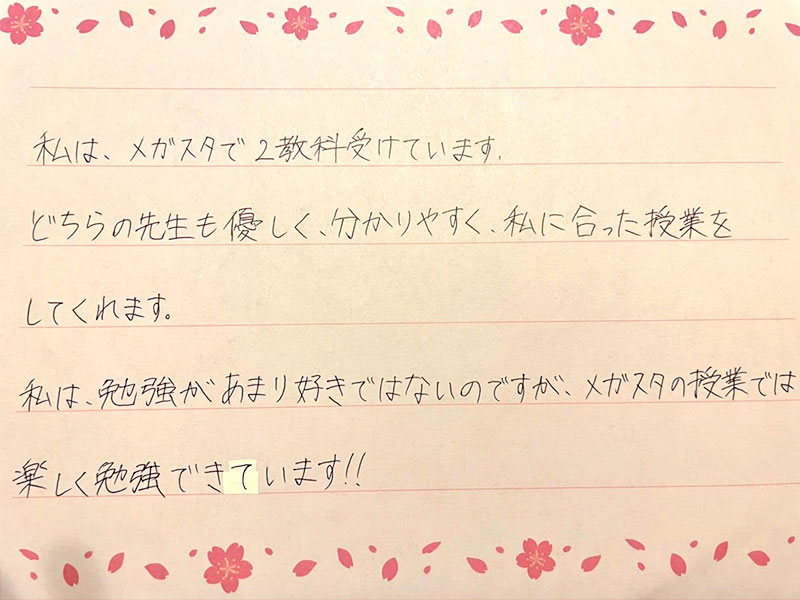 私は、メガスタで2教科受けています。
どちらの先生も優しく、分かりやすく、私に合った授業を
してくれます。
私は、勉強があまり好きではないのですが、メガスタの授業では
楽しく勉強できています!!